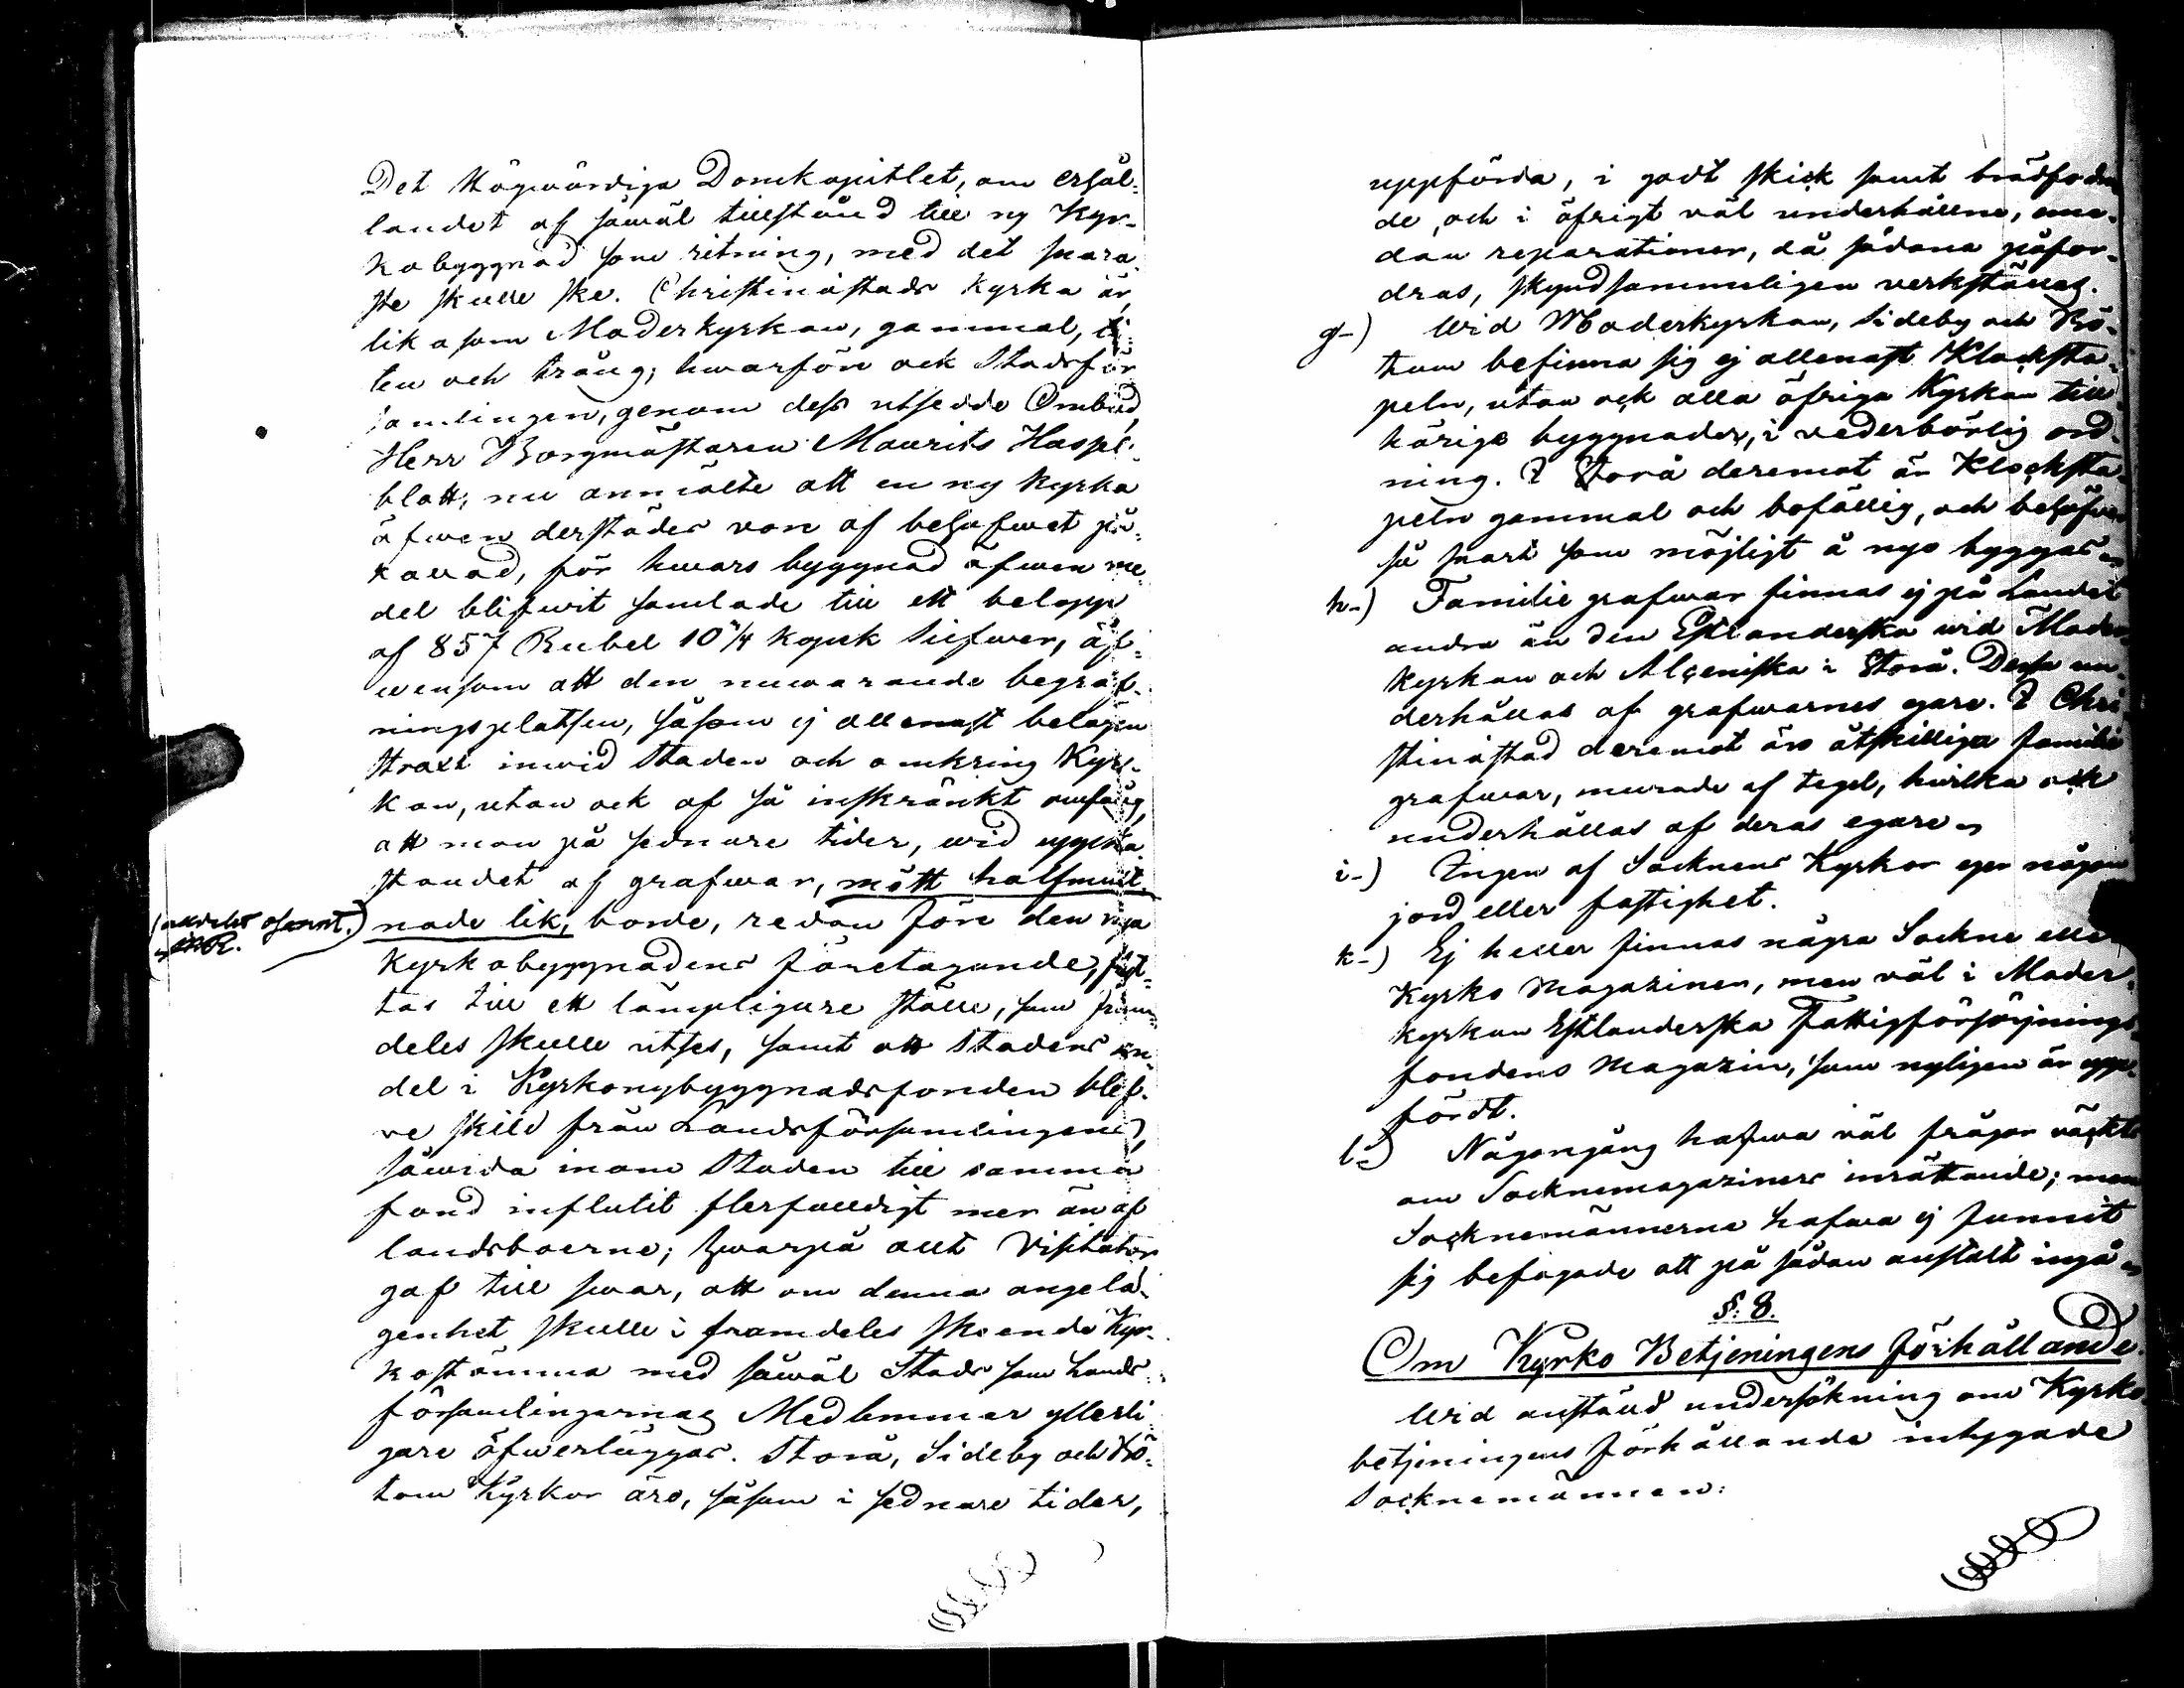 Det Högwördiga Domkapitlet, om erhål-
landet af såwäl tillstånd till ny Kyr-
kobyggnad som ritning, med det snara-
ste skulle ske. Christinæstads Kyrka är,
lika som Moderkyrkan, gammal, li-
ten och trång; hwarföre ock Stadsför-
samlingen, genom dess utsedde Ombud,
Herr Borgmästaren Maurits Haspel-
blatt, nu anmälte att en ny kyrka
äfwen derstädes vore af behofwet på-
kallad, för hwars byggnad äfwen me-
del blifwit samlade till ett belopp
af 857 Rubel 10 1/4 kopek Silfwer, äf-
wensom att den nuwarande begraf-
ningsplatsen, såsom ej allenast belägen
straxt inwid Staden och omkring Kyr-
kan, utan ock af så inskränkt omfång,
att man på sednare tider, wid uppta-
standet af grafwar, mött halfmult-
nade lik, borde, redan före den nya
Kyrkobyggnadens företagande, flyt-
tas till ett lämpligare ställe, som fram-
deles skulle utses, samt att Stadens an-
del i Kyrkonybyggnadsfonden blef-
ve skild från Landsförsamlingens,
såwida inom Staden till samma
fond influtit flerfalldigt mer än af
landsboerne; hwarpå allt Visitator
gaf till swar, att om denna angelä-
genhet skulle i framdeles skeende Kyr-
kostämma med såwäl Stads som Lands-
församlingarnas Medlemmar ytterli-
gare öfwerläggas. Storå, Sideby och Bö-
tom Kyrkor äro, såsom i sednare tider,
osannt.)
uppförda, i godt skick samt brädfodra-
de, och i öfrigt väl underhållne, me-
dan reparationer, då sådana påfor-
dras, skyndsammeligen verkställas.
g-) Wid Moderkyrkan, Sideby och Bö-
tom befinna sig ej allenast Klocksta-
peln, utan ock alla öfriga Kyrkan till-
hörige byggnader, i vederbörlig ord-
ning. I Storå deremot är Klocksta-
peln gammal och bofällig, och behöfwer
så snart som möjligt å nyo byggas
h-) Familie grafwar finnas ej på Landet
andra än den Estlanderska wid Moder-
kyrkan och Alceniska i Storå. Dessa un-
derhållas af grafwarnes egare. I Chri-
stinæstad deremot äro åtskilliga familie
grafwar, murade af tegel, hwilka ock
underhållas af deras egare
i-) Ingen af Socknens Kyrkor eger någon
jord eller fastighet.
k-) Ej heller finnas några Sockne eller
Kyrko Magaziner, men väl i Moder-
kyrkan Estlanderska Fattigförsörjnings
fondens Magazin, som nyligen är upp-
fördt.
l-) Någongång hafwa väl frågor väckts
om Socknemagaziners inrättande; men
Socknemännerne hafwa ej funnit
sig befogade att på sådan anstalt ingå
§. 8.
Om Kyrko Betjeningens förhållande.
Wid anstäld undersökning om Kyrko-
betjeningens förhållande intygade
Socknemännen: